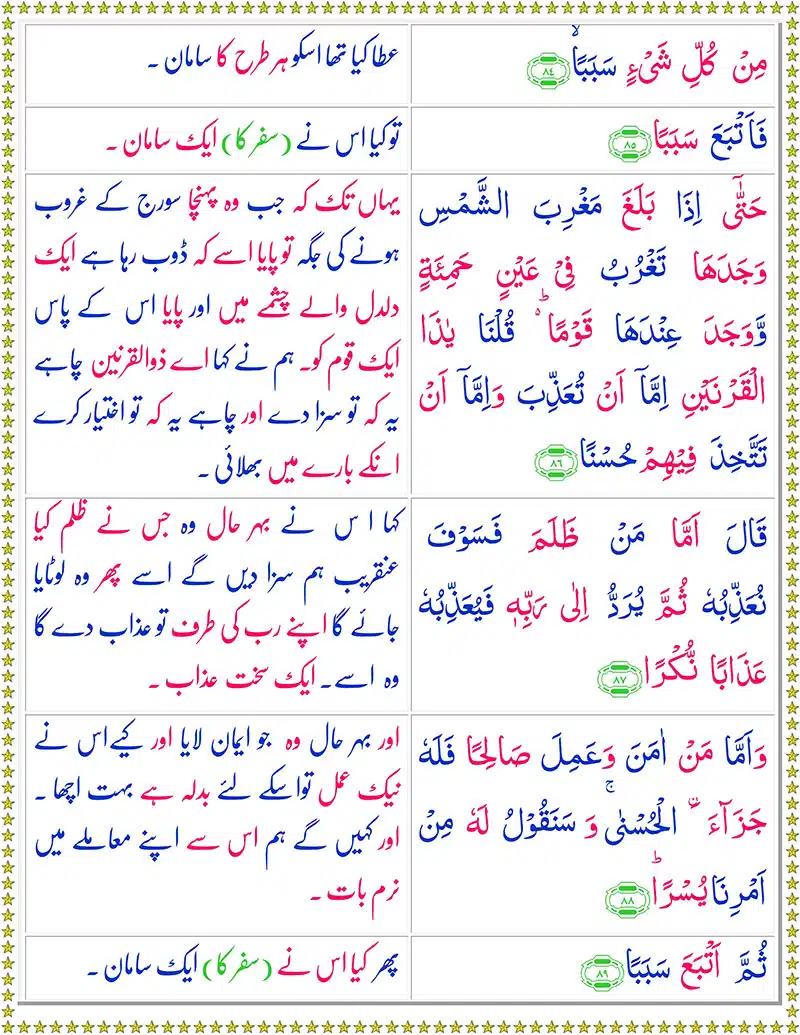 مِنْ كُلِّ شَیْءٍ سَبَبًاۙ ۸۴
عطا کیا تھا اسکو ہر طرح کا سامان ۔
فَاَتْبَعَ سَبَبًا ۸۵
تو کیا اس نے (سفر کا) ایک سامان ۔
حَتّٰۤی اِذَا بَلَغَ مَغْرِبَ الشَّمْسِ
وَجَدَهَا تَغْرُبُ فِیْ عَیْنٍ حَمِئَةٍ
وَّوَجَدَ عِنْدَهَا قَوْمًا ؕ۬ قُلْنَا یٰذَا
الْقَرْنَیْنِ اِمَّاۤ اَنْ تُعَذِّبَ وَاِمَّاۤ اَنْ
تَتَّخِذَ فِیْهِمْ حُسْنًا ۸۶
یہاں تک کہ جب وہ پہنچا سورج کے غروب
ہونے کی جگہ تو پایا اسے کہ ڈوب رہا ہے ایک
دلدل والے چشمے میں اور پایا اس کے پاس
ایک قوم کو۔ ہم نے کہا اے ذوالقرنین چاہے
یہ کہ تو سزا دے اور چاہے یہ کہ تو اختیار کرے
انکے بارے میں بھلائی ۔
قَالَ اَمَّا مَنْ ظَلَمَ فَسَوْفَ
نُعَذِّبُهٗ ثُمَّ یُرَدُّ اِلٰی رَبِّهٖ فَیُعَذِّبُهٗ
عَذَابًا نُّكْرًا ۸۷
کہا ا س نے بہر حال وہ جس نے ظلم کیا
عنقریب ہم سزا دیں گے اسے پھر وہ لوٹایا
جائے گا اپنے رب کی طرف تو عذاب دے گا
وہ اسے۔ ایک سخت عذاب ۔
وَاَمَّا مَنْ اٰمَنَ وَعَمِلَ صَالِحًا فَلَهٗ
جَزَآءَ ۨ الْحُسْنٰی ۚ وَ سَنَقُوْلُ لَهٗ مِنْ
اَمْرِنَا یُسْرًاؕ ۸۸
اور بہر حال وہ جو ایمان لایا اور کیے اس نے
نیک عمل تو اسکے لئے بدلہ ہے بہت اچھا ۔
اور کہیں گے ہم اس سے اپنے معاملے میں
نرم بات ۔
ثُمَّ اَتْبَعَ سَبَبًا ۸۹
پھر کیا اس نے (سفر کا) ایک سامان ۔